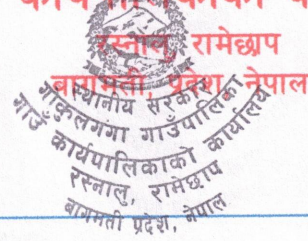 रस्नालु, रामेछाप
बागमती, प्रदेश, नेपाल
स्थानीय सरकार
गोकुलगंगा गाउँपालिका
गाउँ कार्यपालिकाको कार्यालय
रस्नालु, रामेछाप
बागमती प्रदेश, नेपाल